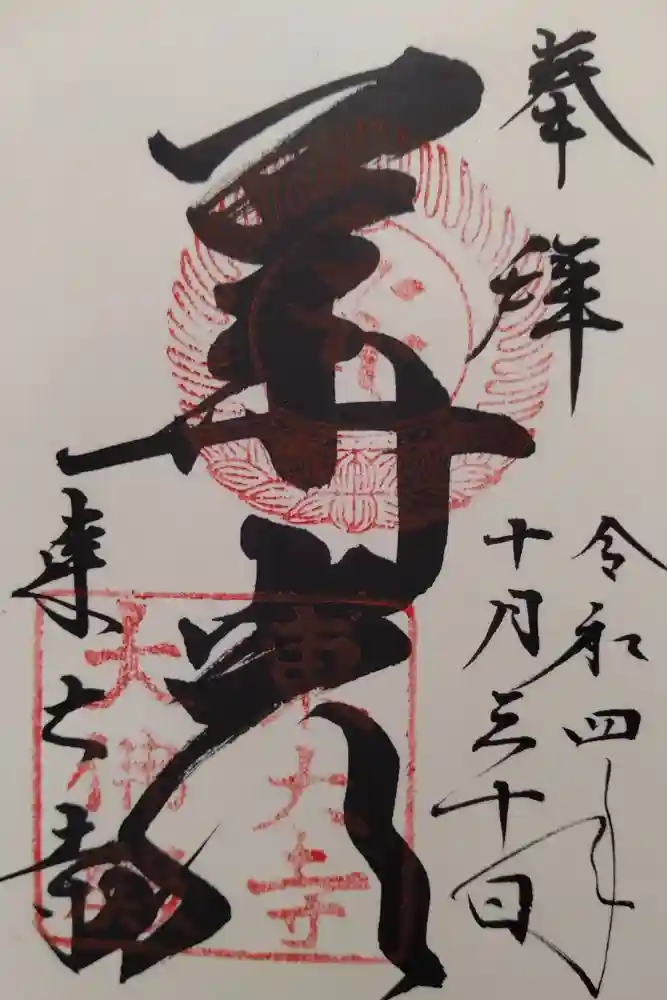 奉拝
令和四年
十月三十日
華厳
東大寺
東大寺
大佛殿